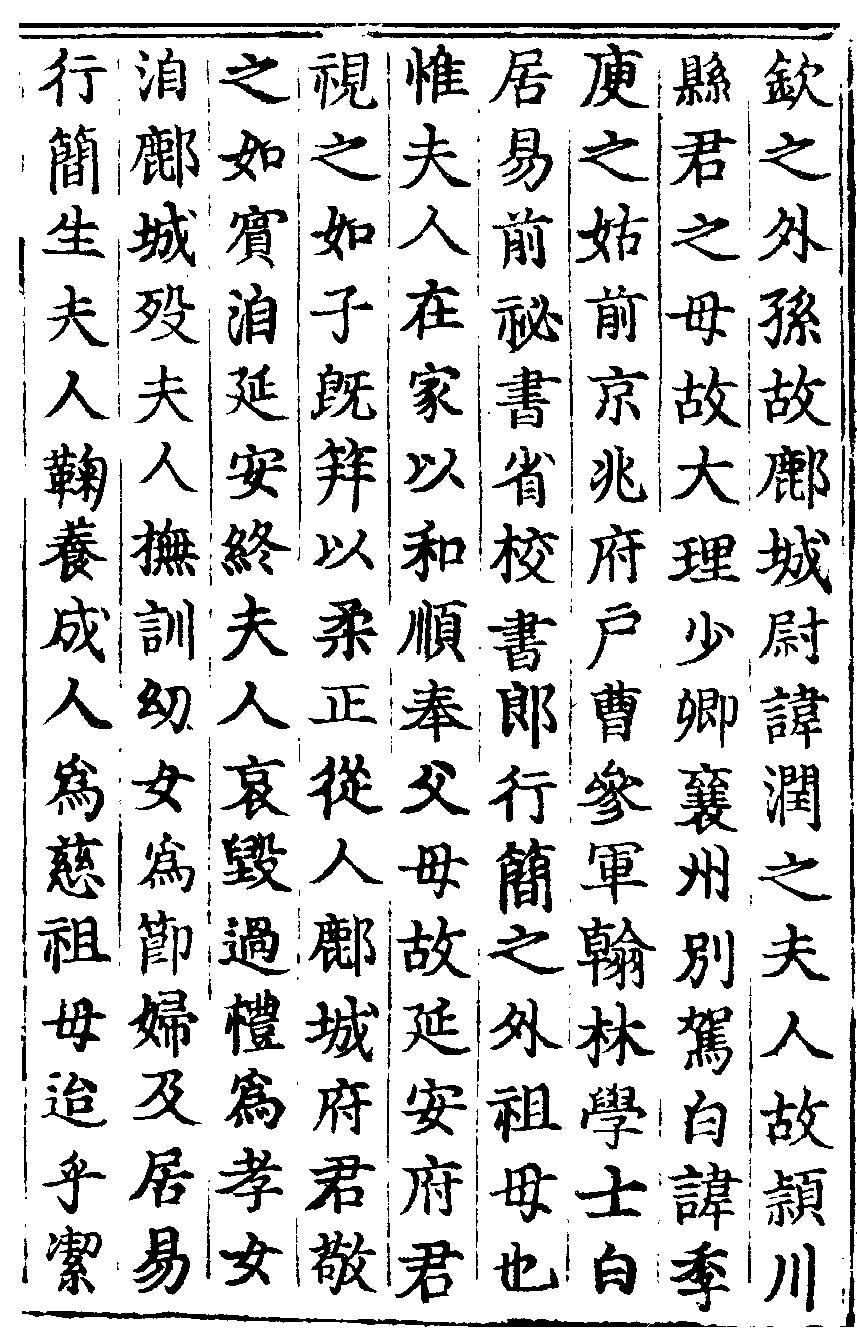 欽之外孫故鄜城尉諱潤之夫人故頴川
縣君之母故大理少卿襄州別駕白諱季
庚之姑前京兆府戸曹參軍翰林學士白
居易前祕書省校書郎行簡之外祖母也
惟夫人在家以和順奉父母故延安府君
視之如子旣笄以柔正從人鄜城府君敬
之如賓洎延安終夫人哀毀過禮爲孝女
洎鄜城歿夫人撫訓幼女爲節婦及居易
行簡生夫人鞠養成人爲慈祖母迨乎潔